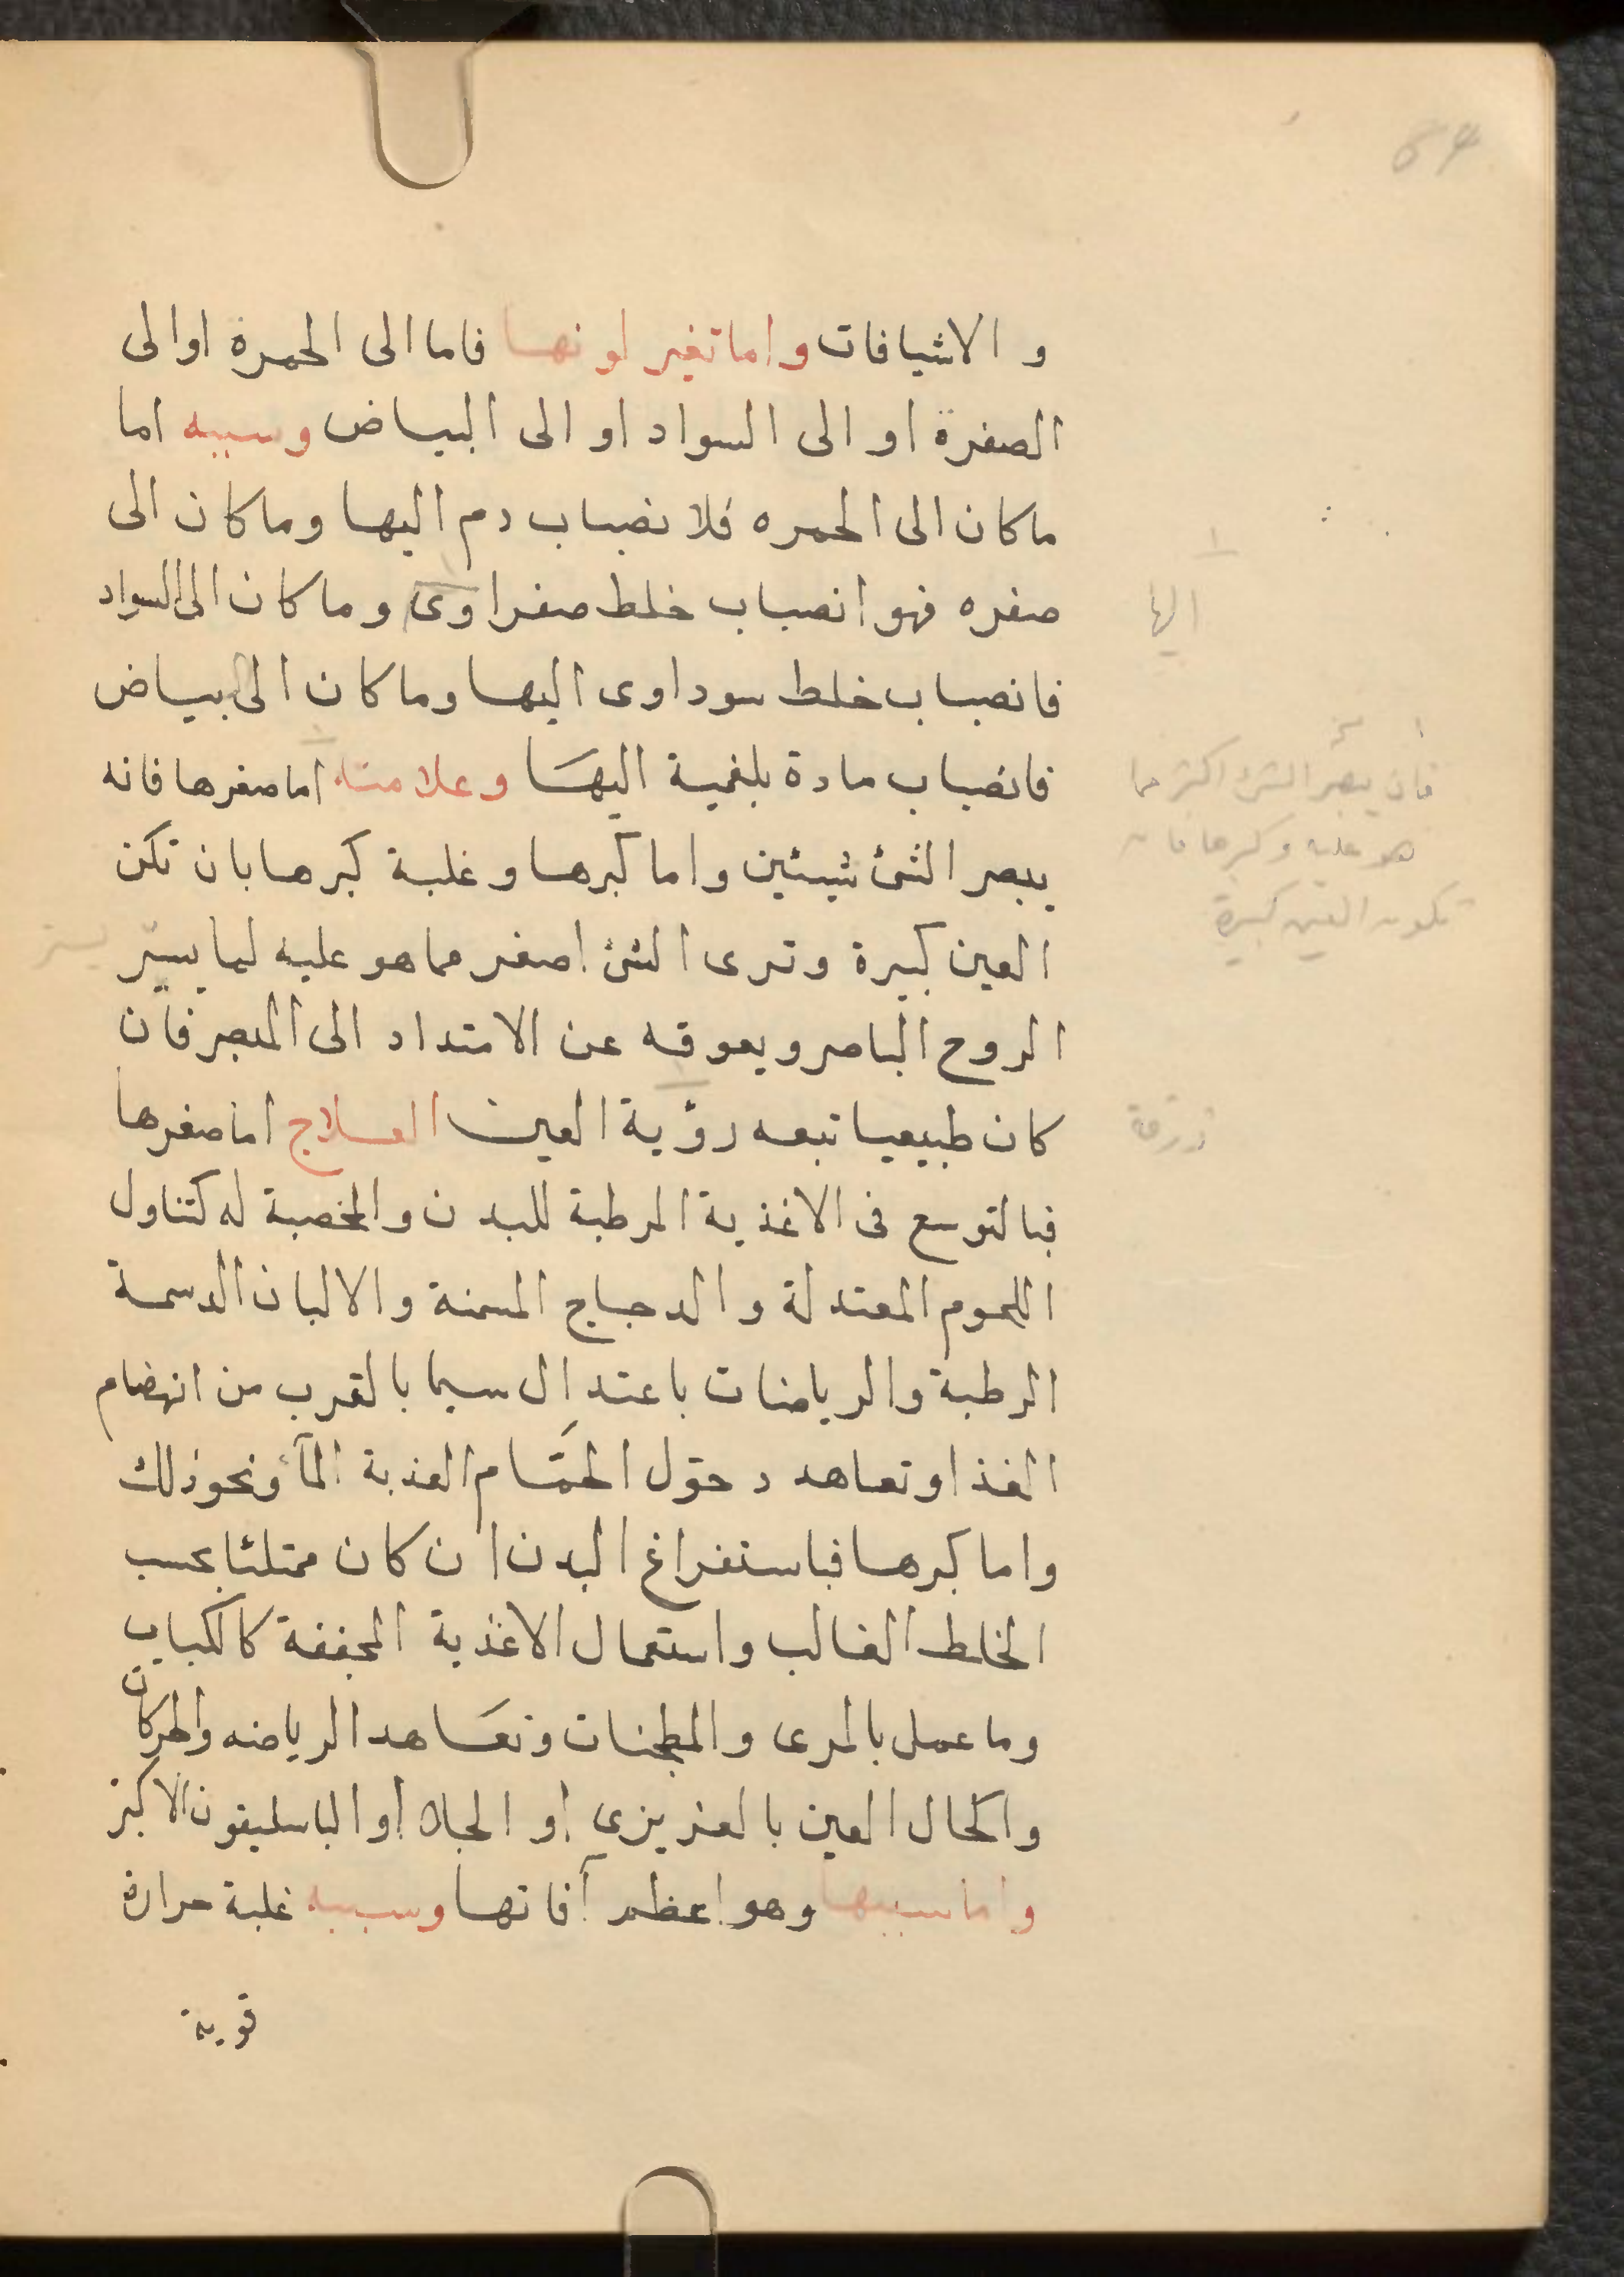 64
و الاشيافات واما تغير لونها فاما الى الحمرة او الى
الصفرة او الى السواد او الى البياض وسببه اما
ما كان الى الحمره فلانصباب دم اليها وما كان الى
صفره فهو انصباب خلط صفراوى وما كان الى السواد
اليها
فانصباب خلط سوداوى اليها وما كان الى بياض
فانصباب مادة بلغمية اليها وعلامته اما صغرها فانه
فان يبصر الشئ اكثر مما
هو عليه وكبرها فان
تكون العين كبيرة
يبصر الشئ شيئين واما كبرها وغلبة كبرها بان تكن
العين كبيرة وترى الشئ اصغر مما هو عليه لما يسير
الروح الباصر ويعوقه عن الامتداد الى المبصر فان
كان طبيعيا تبعه رؤية العين العلاج اما صغرها
زرقة
فبالتوسع فى الاغذية المرطبة للبدن والمخصبة له كتناول
اللحوم المعتدلة والدجاج المسمنة والالبان الدسمة
الرطبة والرياضات باعتدال سيما بالقرب من انهضام
الغذا وتعاهد دحول الحمّام العذبة المآء ونحو ذلك
واما كبرها فباستفراغ البدن ان كان ممتلئا بحسب
الخلط الغالب واستعمال الاغذية المجففة كالكباب
وما عمل بالمرى والمطجنات وتعَاهد الرياضه والحركات
واكحال العين بالعزيزى او الجلا او الباسليقون الاكبر
واما سببها وهو اعظم آفاتها وسببه غلبة حرارة
قوية